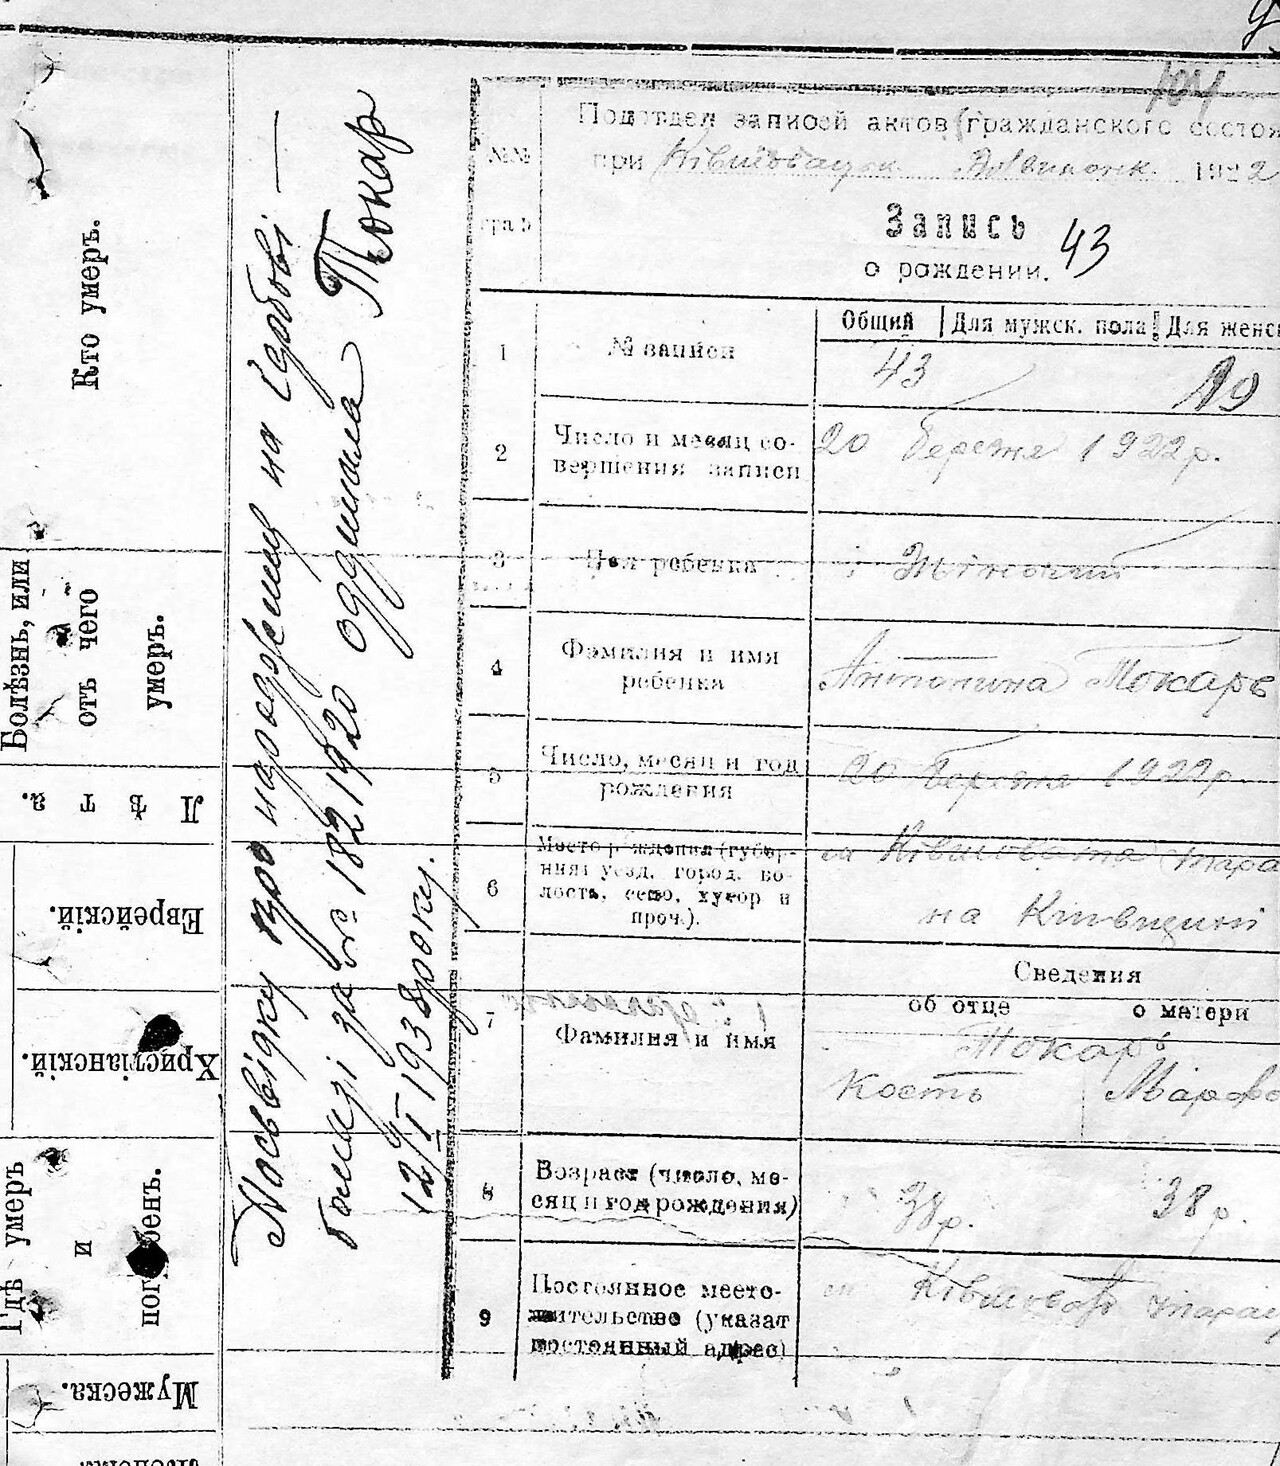 104
Подотдел записей актов гражданского состоя
при Ківшоватск. Волвиконк. 1922
№№
граф
Запись 43
о рождении.
Общий Для мужск. пола Для женск
1 № записи 43 19
2 Число и месяц со-
вершения записи 20 березня 1922 р.
3 Пол ребенка Жіночий
4 Фамилия и имя
ребенка Антонина Токарь
5 Число, месяц и год
рождения 20 березня 1922 р.
6 Место рождения (губер-
ния, уезд, город, во-
лость, село, хутор и
проч.). м Ківшовата Тара
на Київщині
Сведения
об отце о матери
7 Фамилия и имя Токарь
Кость Марфа
8 Возраст (число, ме-
сяц и год рождения) 38 р. 38 р.
9 Постоянное место-
жительство (указат
постоянный адрес) м Ківшовата Таращ
Посьвідку про народження на
за № 1821920 одержала Токар
12/I 1938 року.
Кто умеръ.
Болѣзнь, или
отъ чего
умеръ.
Лѣта.
Еврейскій.
Христіанскій.
Гдѣ умеръ
и
погребенъ.
Мужеска.